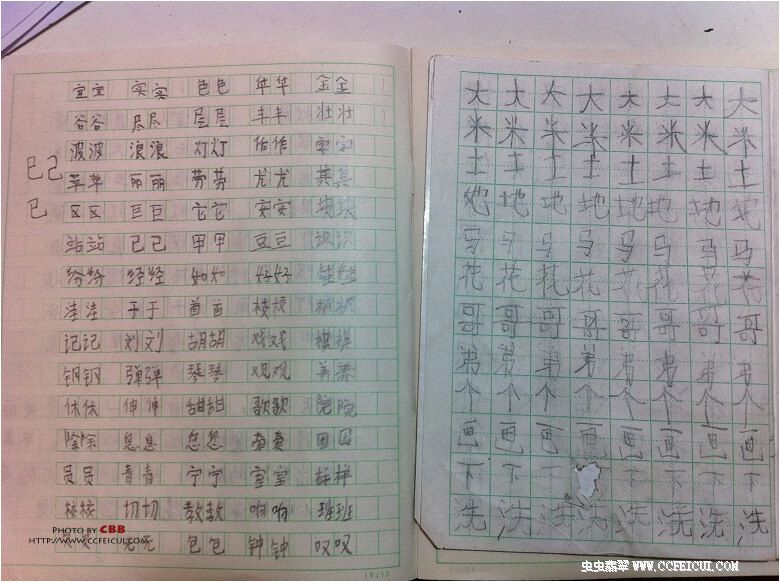 宜宜 实实 色色 华华 金金
谷谷 尽尽 层层 丰丰 壮壮
波波 浪浪 灯灯 作作 字字
苹苹 丽丽 劳劳 尤尤 其其
区区 巨巨 它它 安安 块块
站站 己己 甲甲 豆豆 识识
纷纷 经经 如如 好好 娃娃
洼洼 于于 首首 枝枝 枫枫
记记 刘刘 胡胡 戏戏 棋棋
钢钢 弹弹 琴琴 观观 养养
休休 伸伸 甜甜 歌歌 院院
除除 息息 您您 牵牵 困困
员员 青青 宁宁 室室 样样
校校 切切 教教 响响 班班
包包 钟钟 叹叹
已己
已
18×15
PHOTO BY CBB
HTTP://WWW.CCFEICUI.COM
大大大大大大大大
米米米米米米米米
土土土土土土土土
地地地地地地地地
马马马马马马马马
花花花花花花花花
哥哥哥哥哥哥哥哥
弟弟弟弟弟弟弟弟
个个个个个个个个
画画画画画画画画
下下下下下下下
洗洗洗洗洗洗洗洗
虫虫翡翠 WWW.CCFEICUI.COM